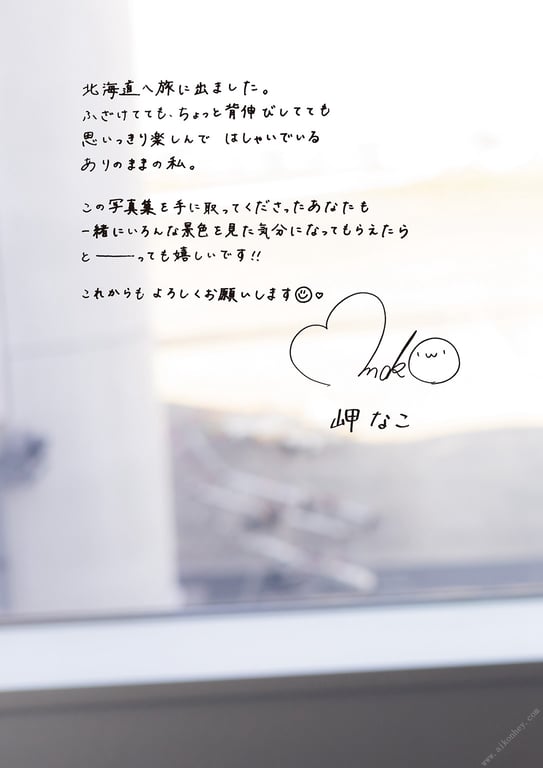 北海道へ旅に出ました。
ふざけてても、ちょっと背伸びしてても
思いっきり楽しんで はしゃいでいる
ありのままの私。
この写真集を手に取ってくださったあなたも
一緒にいろんな景色を見た気分になってもらえたら
と―――っても嬉しいです!!
これからも よろしくお願いします☺♡
岬 なこ
www.aikonhey.com